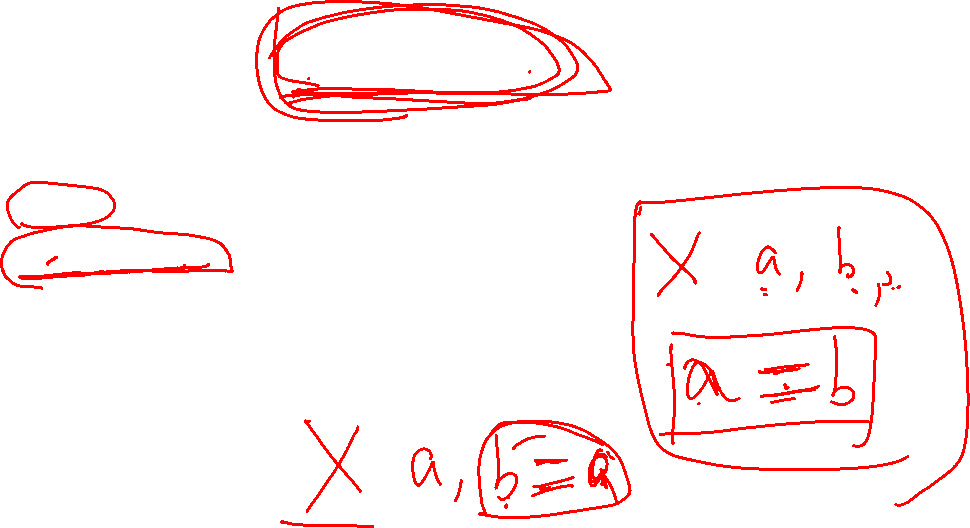 X a, b,
a = b
X a, b = a